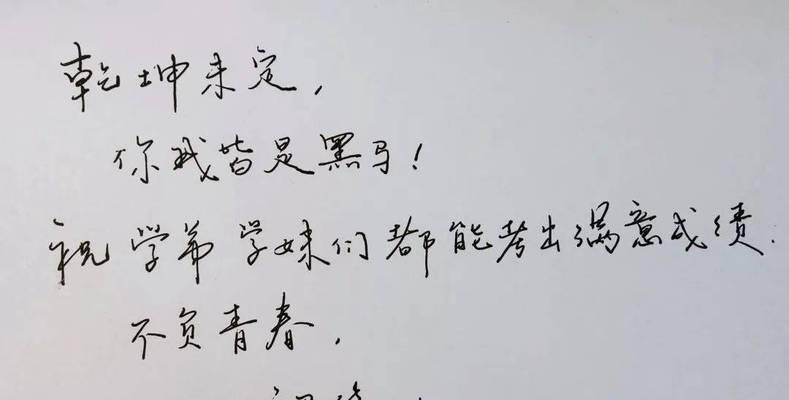 乾坤未定,
你我皆是黑马!
祝学弟学妹们都能考出满意成绩.
不负青春,